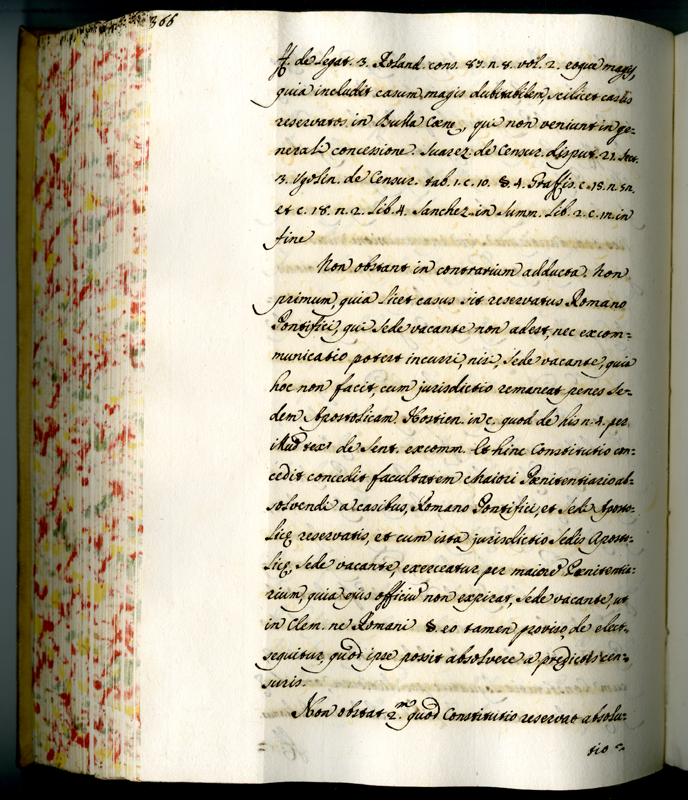 366
ff. de Legat. 3. Roland. cons. 87. n. 8. vol. 2. eoque magis,
quia includit casum magis dubitabilem, scilicet casus
reservatos in Bulla Cœnę, qui non veniunt in ge-
nerali concessione. Suarez de Censur. disput. 21. sect.
3. Ugolin. de Censur. tab. 1. c. 10. §. 4. Graffis. c. 18. n.
et c. 18. n. 2. lib. 4. Sanchez in Summ. lib. 2. c. 11. in
fine
Non obstant in contrarium adducta. Non
primum, quia licet casus sit reservatus Romano
Pontifici, qui Sede vacante non adest, nec excom-
municatio potest incurri, nisi, Sede vacante, quia
hoc non facit, cum jurisdictio remaneat penes Se-
dem Apostolicam. Hostien. in c. quod de his n. 4. per
illud tex. de Sent. excomm. Et hinc Constitutio con-
cedit concedit facultatem Maiori Pœnitentiario ab-
solvendi a casibus, Romano Pontifici, et Sedi Aposto-
licę reservatis, et cum ista jurisdictio Sedis Aposto-
licę, Sede vacante, exerceatur per maiorē Pœnitentia-
rium, quia ejus officiū non expirat, Sede vacante, ut
in Clem. ne Romani §. eo tamen proviso, de elect.
sequitur, quod ipse possit absolvere a prędictis cen-
suris.
Non obstat 2.m quod Constitutio reservat absolu-
tio